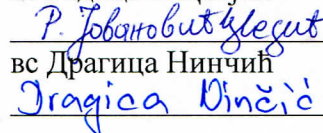 Р. Јовановић
вс Драгица Нинчић
Dragica Ninčić